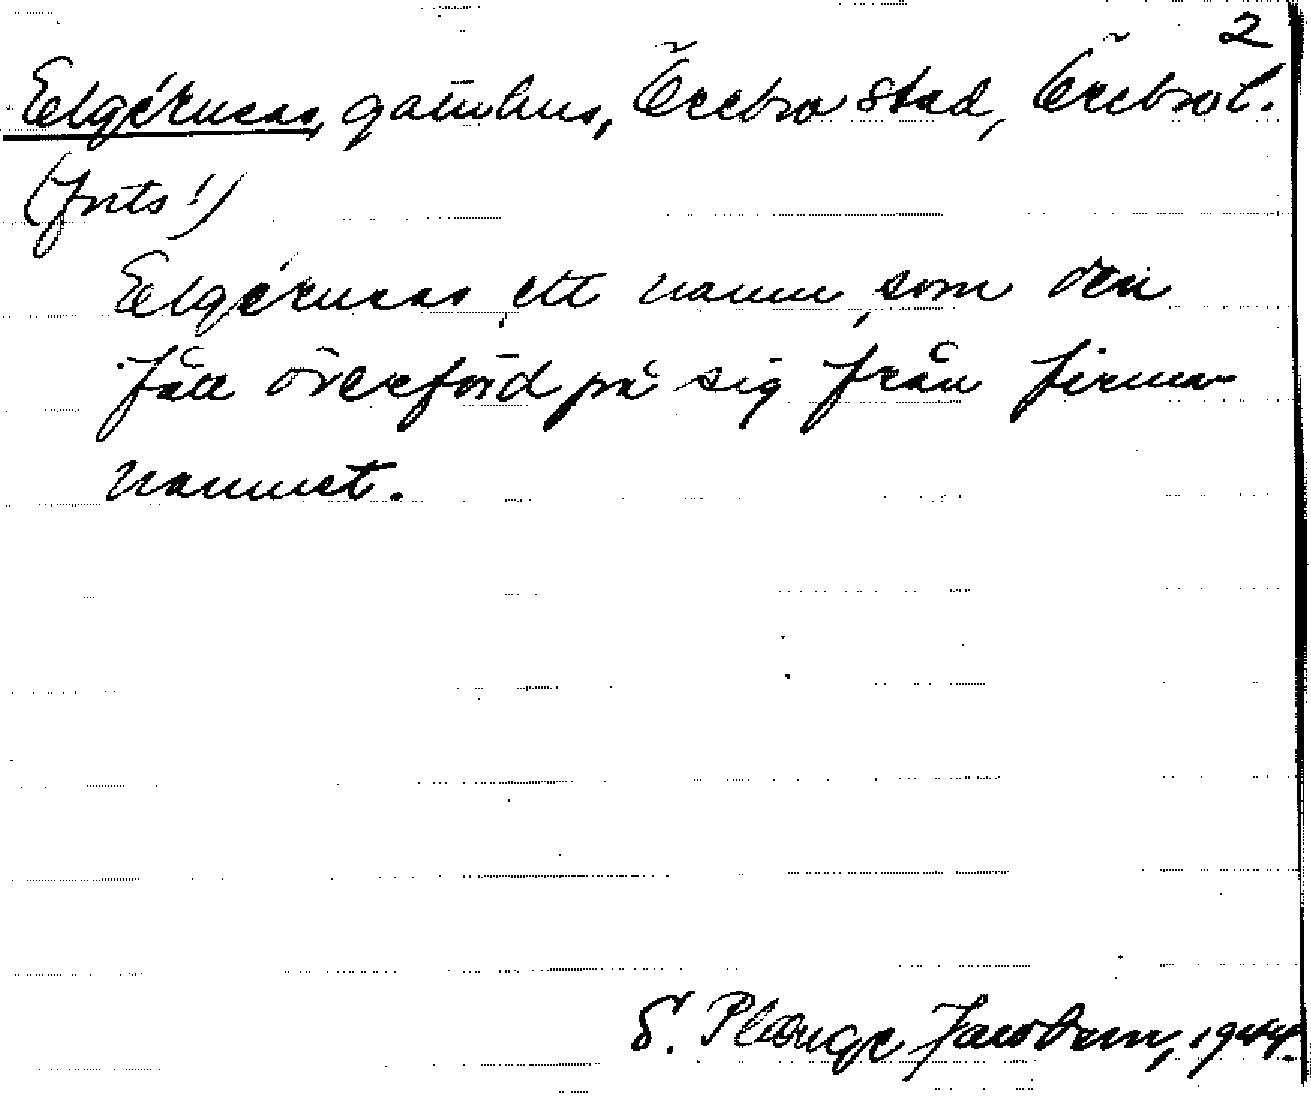 2
Elgérusas, gatuhus, Örebro stad, Örebro l.
(forts!)
Elgérusas, ett namn, som den
fått överförd på sig från firma-
namnet.
S. Plænge Jacobson, 1944.